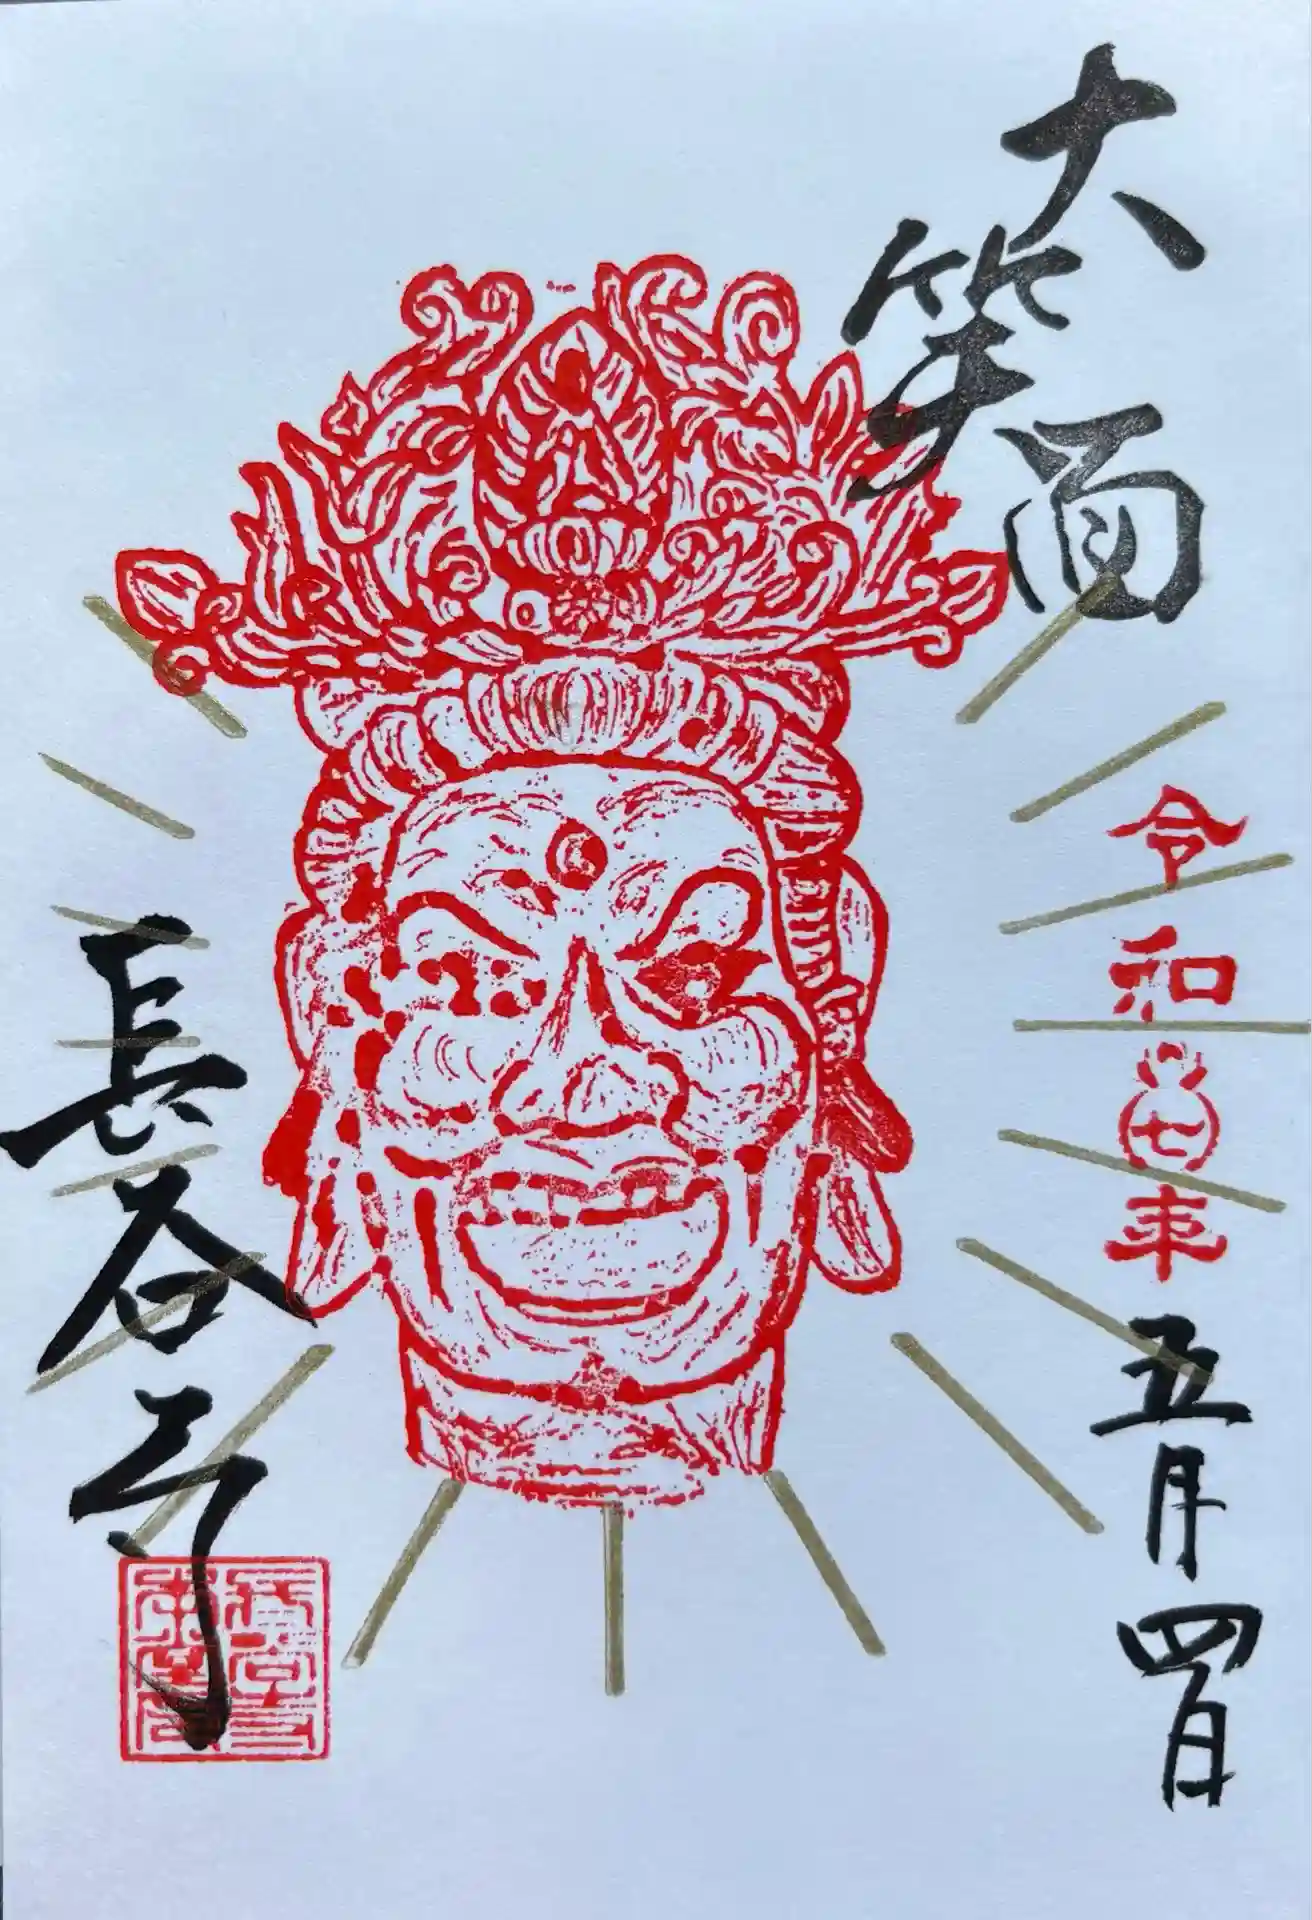 大笑面
令和七年五月四日
長谷寺